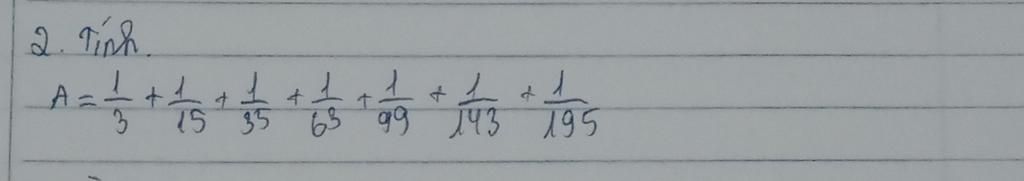 2. Tính.
A = 1/3 + 1/15 + 1/35 + 1/63 + 1/99 + 1/143 + 1/195